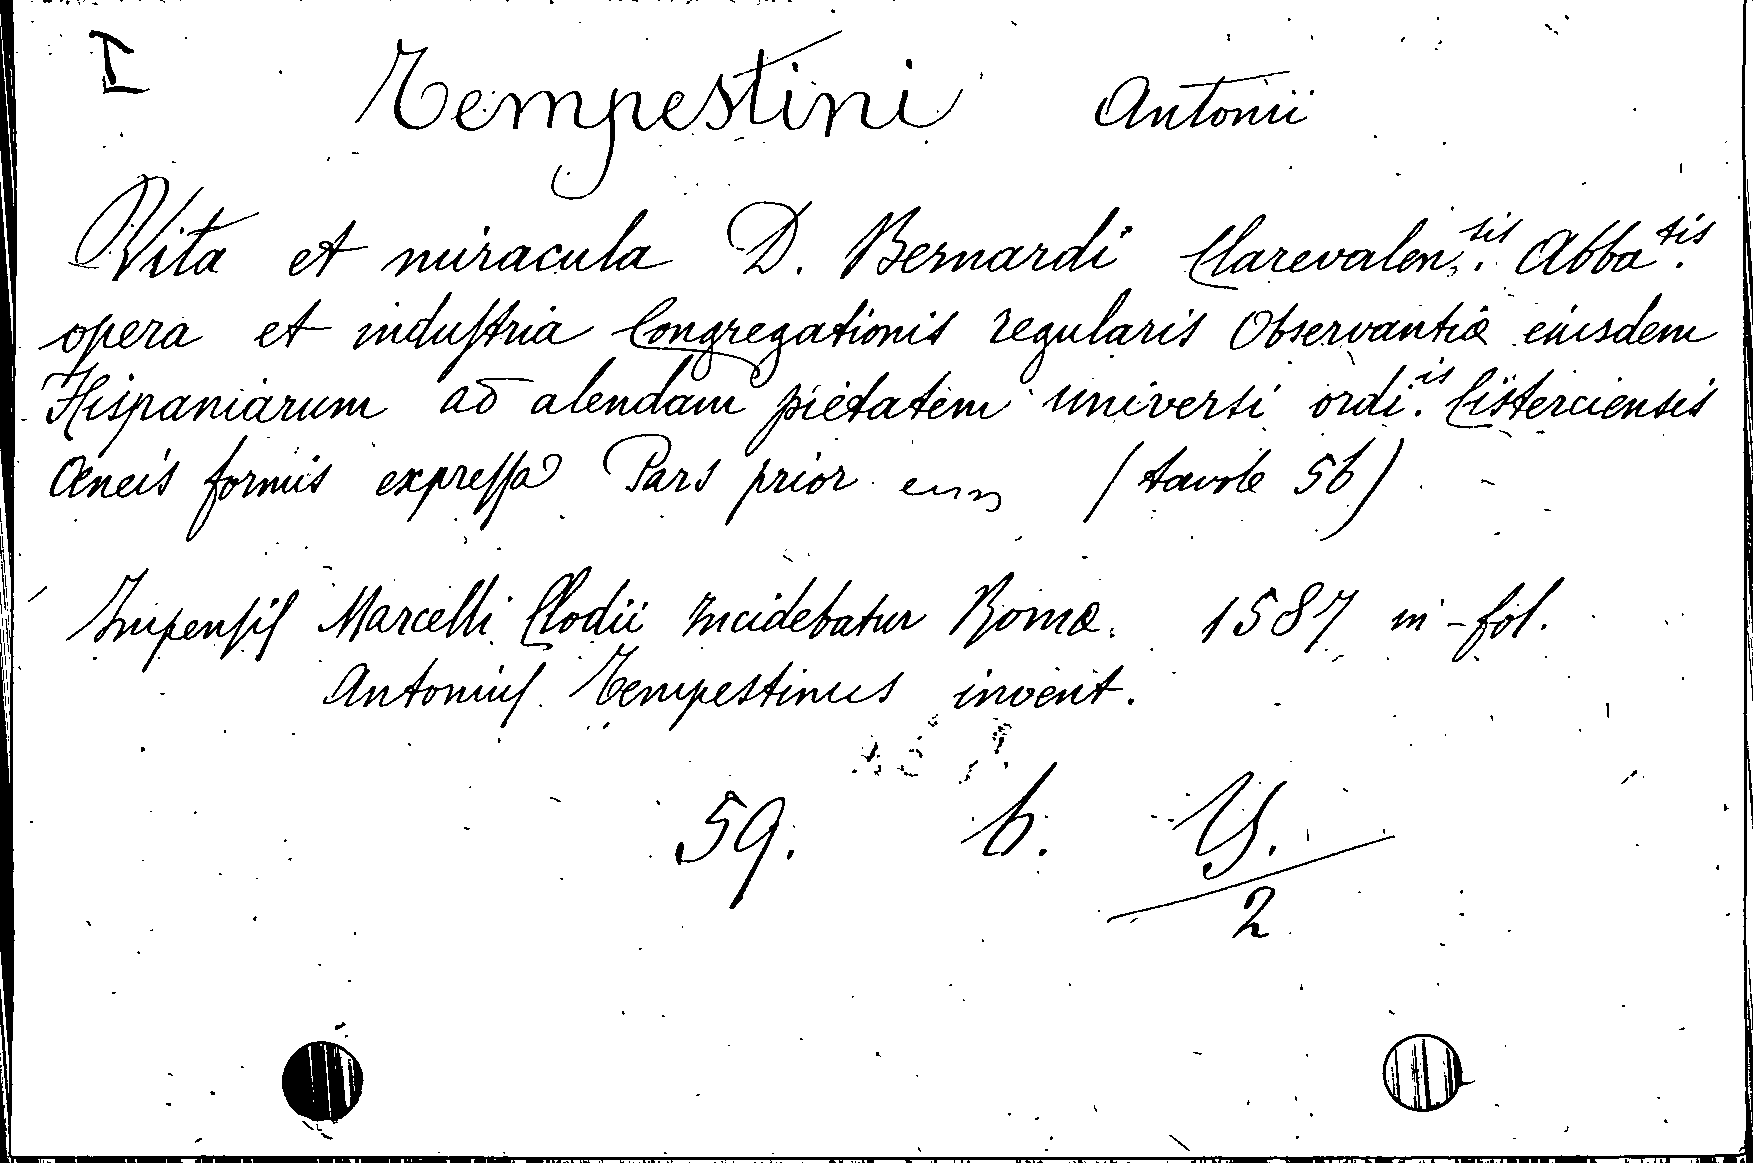 I Tempestini Antonii
Vita et miracula D. Bernardi Clarevalen.sis Abba.tis
opera et induſtria Congregationis regularis Observantiæ eiusdem
Hispaniarum ad alendam pietatem universi ordi.is Cisterciensis
Æneis formis expreſſa Pars prior (tavole 56)
Impenſiſ Marcelli Clodii Incidebatur Romæ. 1587 in-fol.
Antoniuſ Tempestinus invenit.
59. b. 15.
2